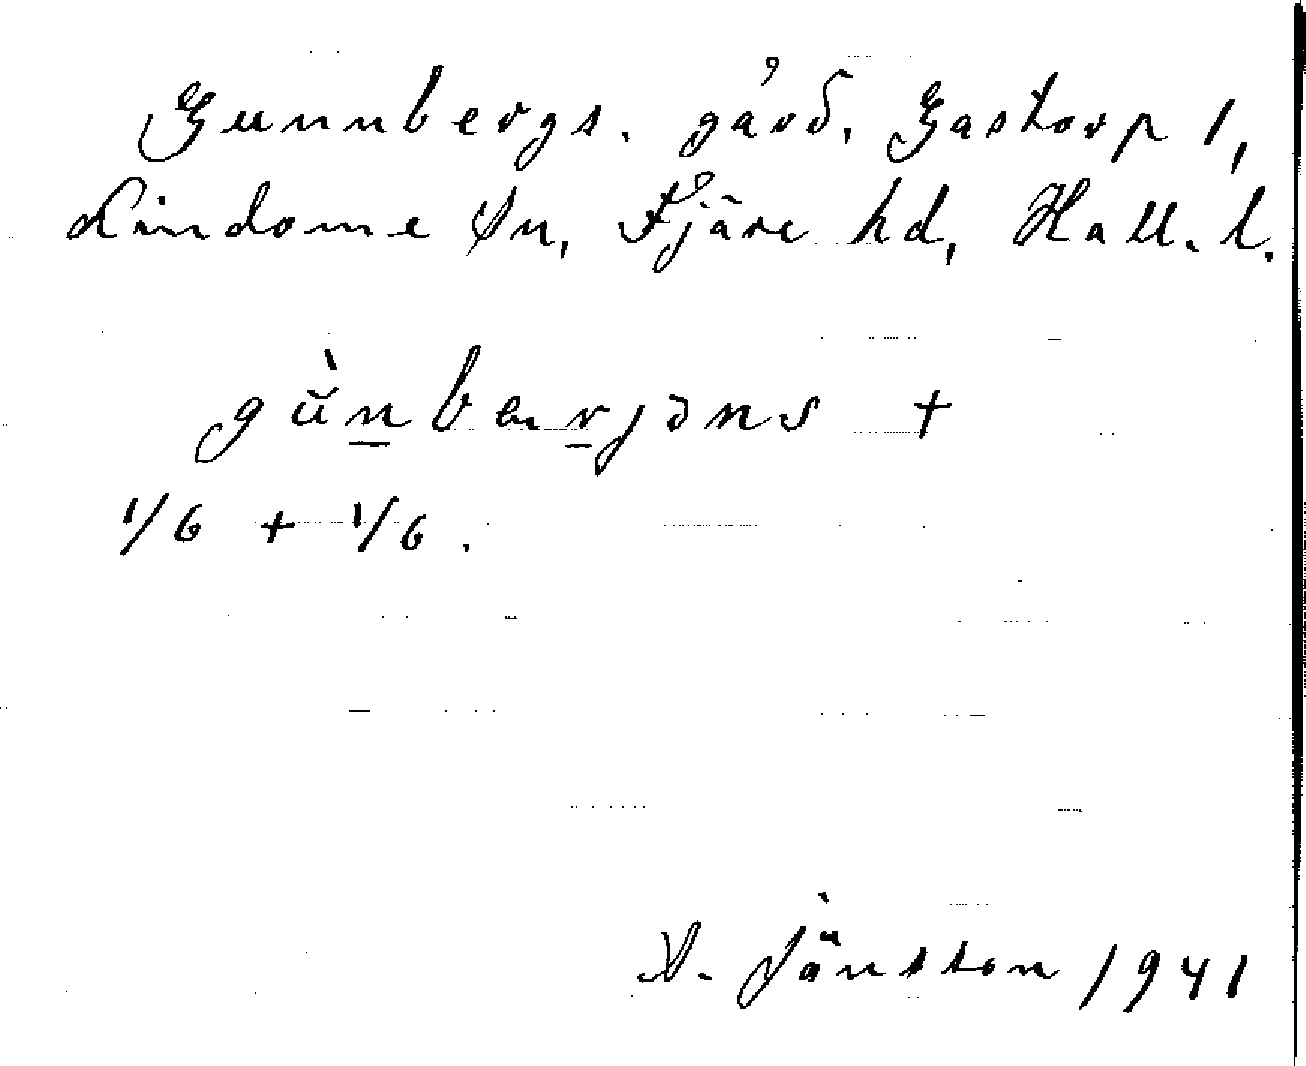 Gunnbergs. gård. Gastorp 1,
Lindome sn, Fjäre hd, Hall. l.
gùnbærjəns +
1/6 + 1/6.
Jänston 1941